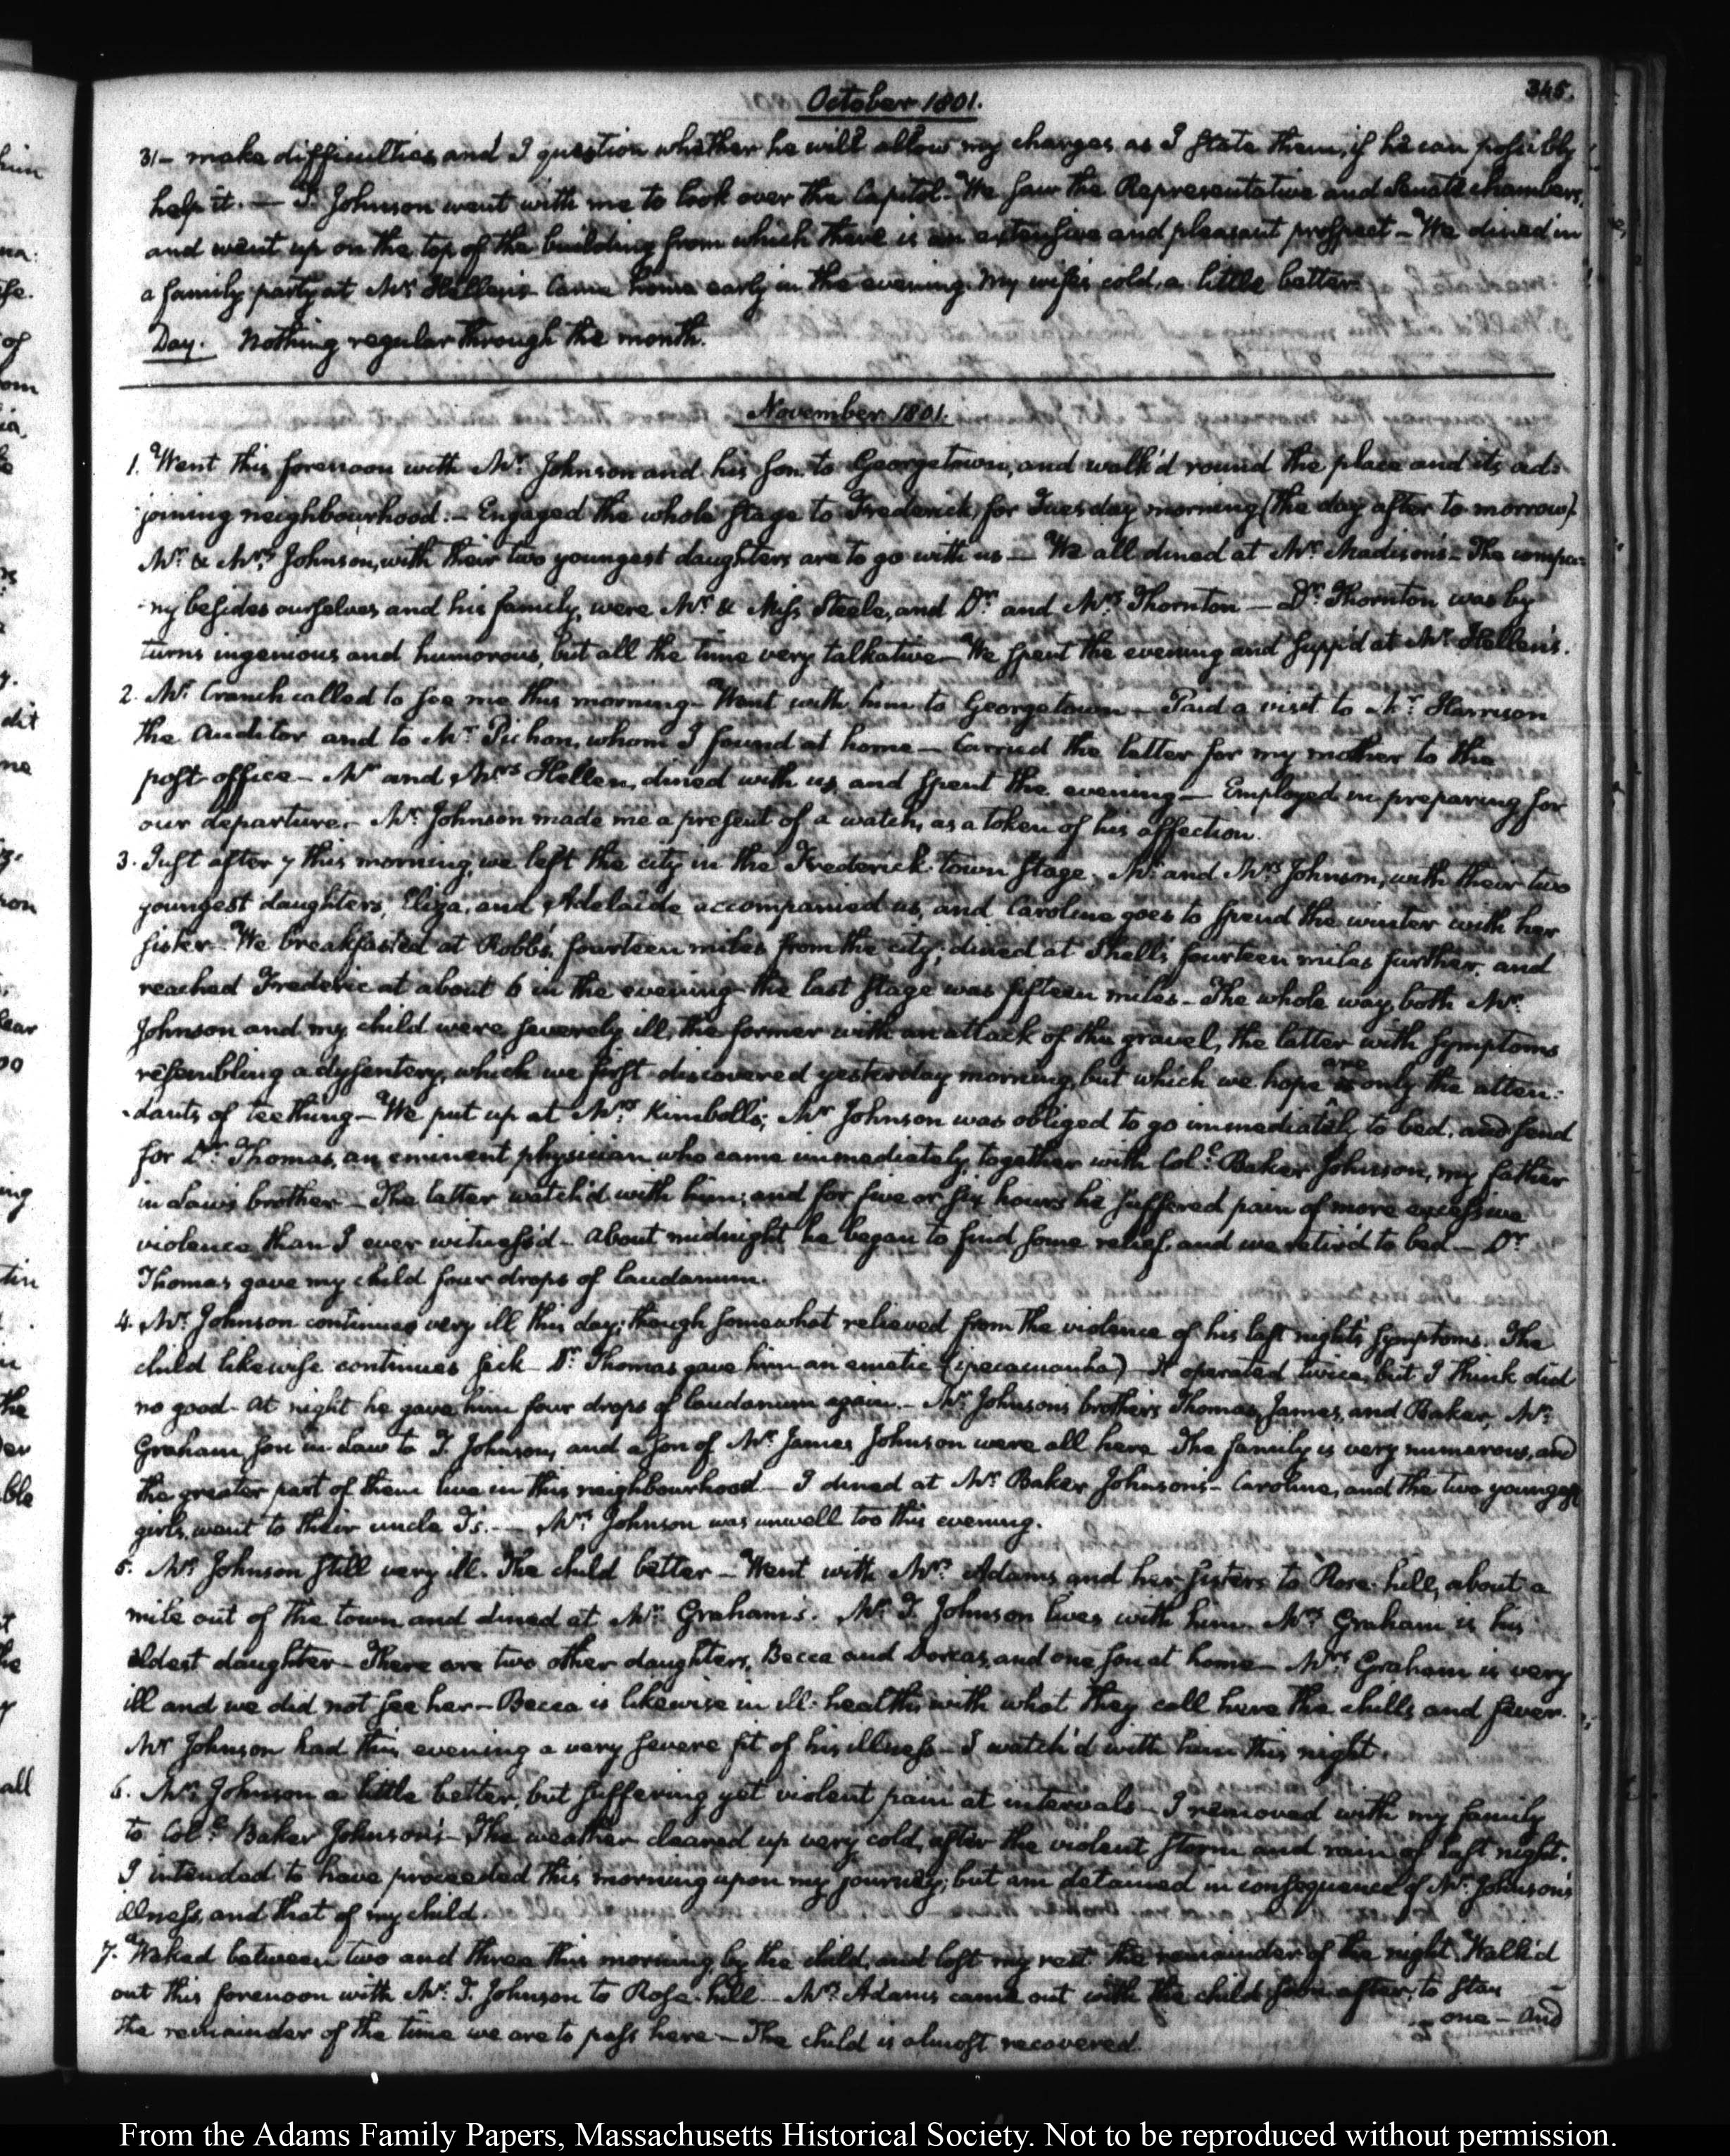 345.
October 1801.
31 - make difficulties and I question whether he will allow my charges, as I state them, if he can possibly
help it. — T. Johnson went with me to look over the Capitol - We saw the Representative and Senate chambers,
and went up on the top of the building from which there is an extensive and pleasant prospect - We dined in
a family party at Mr. Hellen's - Came home early in the evening. My wife's cold, a little better.
Day. Nothing regular through the month.
November 1801.
1. Went this forenoon with Mr. Johnson and his son to Georgetown, and walk'd round the place and its ad-
joining neighbourhood: - Engaged the whole stage to Frederick, for Tuesday morning (the day after to-morrow).
Mr. & Mrs. Johnson, with their two youngest daughters are to go with us — We all dined at Mr. Madison's - The compa-
ny besides ourselves and his family, were Mr. & Miss Steele, and Dr. and Mrs. Thornton — Dr. Thornton was by
turns ingenious and humorous, but all the time very talkative — We spent the evening and supp'd at Mr. Hellen's.
2. Mr. Cranch called to see me this morning - Went with him to Georgetown - Paid a visit to Mr. Harrison
the Auditor and to Mr. Pichon, whom I found at home — Carried the letter for my mother to the
post-office - Mr. and Mrs. Hellen, dined with us, and spent the evening — Employed in preparing for
our departure. - Mr. Johnson made me a present of a watch, as a token of his affection.
3. Just after 7 this morning, we left the city in the Frederick-town stage. Mr. and Mrs. Johnson, with their two
youngest daughters, Eliza, and Adelaide accompanied us, and Caroline goes to spend the winter with her
sister - We breakfasted at Robb's, fourteen miles from the city; dined at Shell's, fourteen miles further, and
reached Frederic at about 6 in the evening - the last stage was fifteen miles - The whole way, both Mr.
Johnson and my child were severely ill, the former with an attack of the gravel, the latter with symptoms
resembling a dysentery, which we first discovered yesterday morning, but which we hope are only the atten-
dants of teething - We put up at Mrs. Kimboll's; Mr Johnson was obliged to go immediately to bed, and send
for Dr. Thomas, an eminent physician who came immediately, together with Col.l Baker Johnson, my father
in law's brother - The latter watch'd with him; and for five or six hours he suffered pain of more excessive
violence than I ever witness'd - About midnight he began to find some relief, and we retir'd to bed - Dr
Thomas gave my child four drops of laudanum.
4. Mr. Johnson continues very ill this day; though somewhat relieved from the violence of his last night's symptoms. The
child likewise continues sick - Dr. Thomas gave him an emetic (ipecacuanha) - It operated twice, but I think did
no good - At night he gave him four drops of laudanum again. - Mr. Johnson's brothers Thomas, James, and Baker, Mr.
Graham son in law to T. Johnson, and a son of Mr. James Johnson were all here. The family is very numerous, and
the greater part of them live in this neighbourhood — I dined at Mr. Baker Johnson's - Caroline, and the two youngest
girls, went to their uncle T's. — Mrs. Johnson was unwell too this evening.
5. Mr. Johnson still very ill. The child better - Went with Mrs. Adams, and her sisters to Rose-hill, about a
mile out of the town, and dined at Mr. Graham's. Mr. T. Johnson lives with him. Mrs. Graham is his
eldest daughter - There are two other daughters, Becca and Dorcas, and one son at home - Mrs. Graham is very
ill and we did not see her - Becca is likewise in ill-health, with what they call here the chills and fever.
Mr Johnson had this evening a very severe fit of his illness - I watch'd with him this night.
6. Mr. Johnson a little better, but suffering yet violent pain at intervals - I removed with my family
to Col.l Baker Johnson's - The weather cleared up very cold, after the violent storm and rain of last night.
I intended to have proceeded this morning upon my journey; but am detained in consequence of Mr. Johnson's
illness, and that of my child.
7. Waked between two and three this morning, by the child, and lost my rest the remainder of the night. Walk'd
out this forenoon with Mr. T. Johnson to Rose-hill - Mrs. Adams came out with the child soon after, to stay
one - and
the remainder of the time we are to pass here - The child is almost recovered.
From the Adams Family Papers, Massachusetts Historical Society. Not to be reproduced without permission.